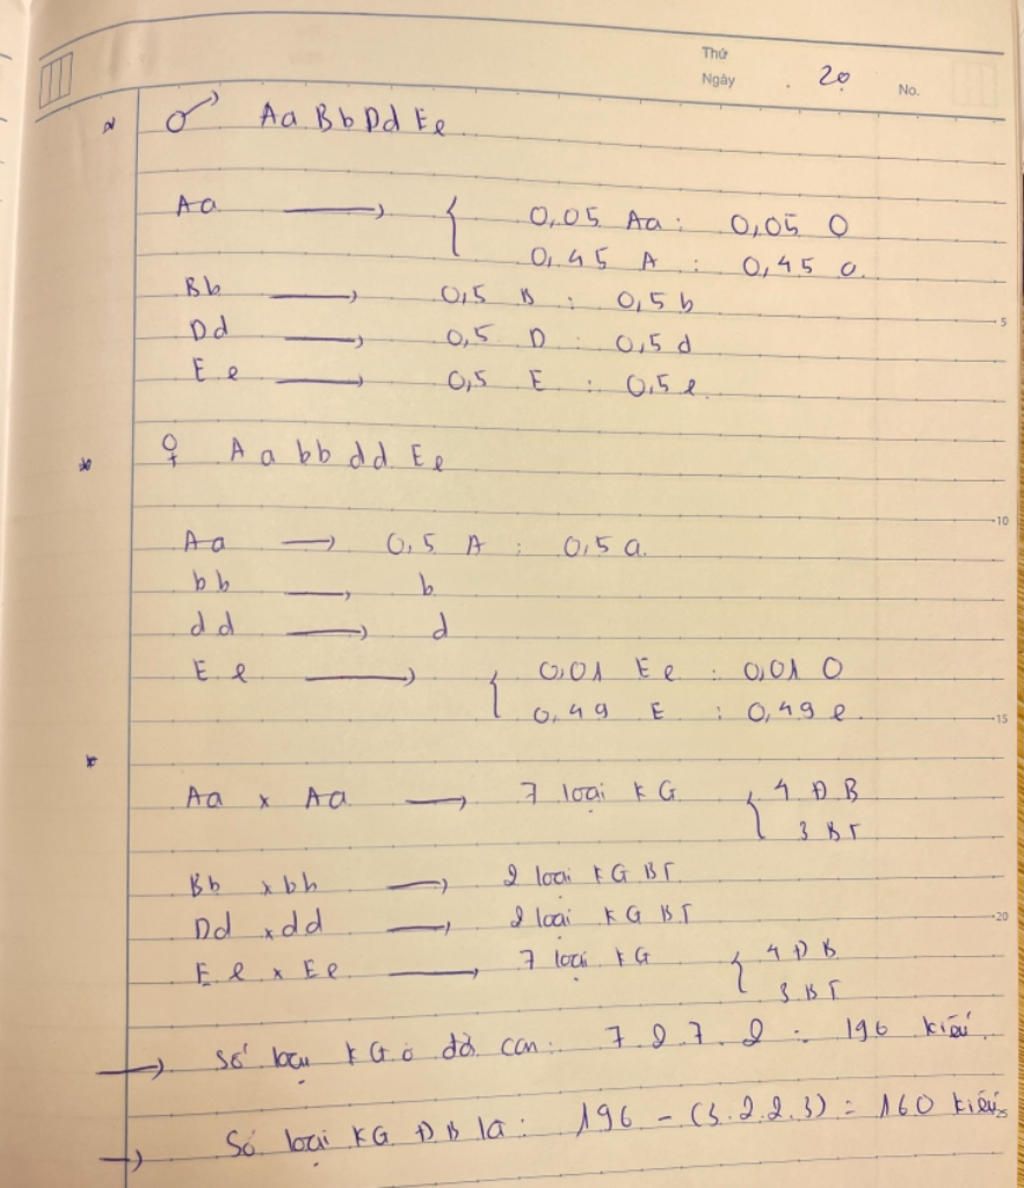 Thứ
Ngày . 20 No.
♂ AaBbDdEe
Aa → { 0,05 Aa : 0,05 O
0,45 A : 0,45 a
Bb → 0,5 B : 0,5 b
5
Dd → 0,5 D : 0,5 d
Ee → 0,5 E : 0,5 e
* ♀ AabbddEe
10
Aa → 0,5 A : 0,5 a
bb → b
dd → d
Ee → { 0,01 Ee : 0,01 O
0,49 E : 0,49 e
15
*
Aa x Aa → 7 loại KG { 4 ĐB
3 BT
Bb x bb → 2 loại KG BT
Dd x dd → 2 loại KG BT
20
Ee x Ee → 7 loại KG { 4 ĐB
3 BT
→ Số loại KG ở đời con: 7.2.7.2 = 196 kiểu
→ Số loại KG ĐB là: 196 - (3.2.2.3) = 160 kiểu